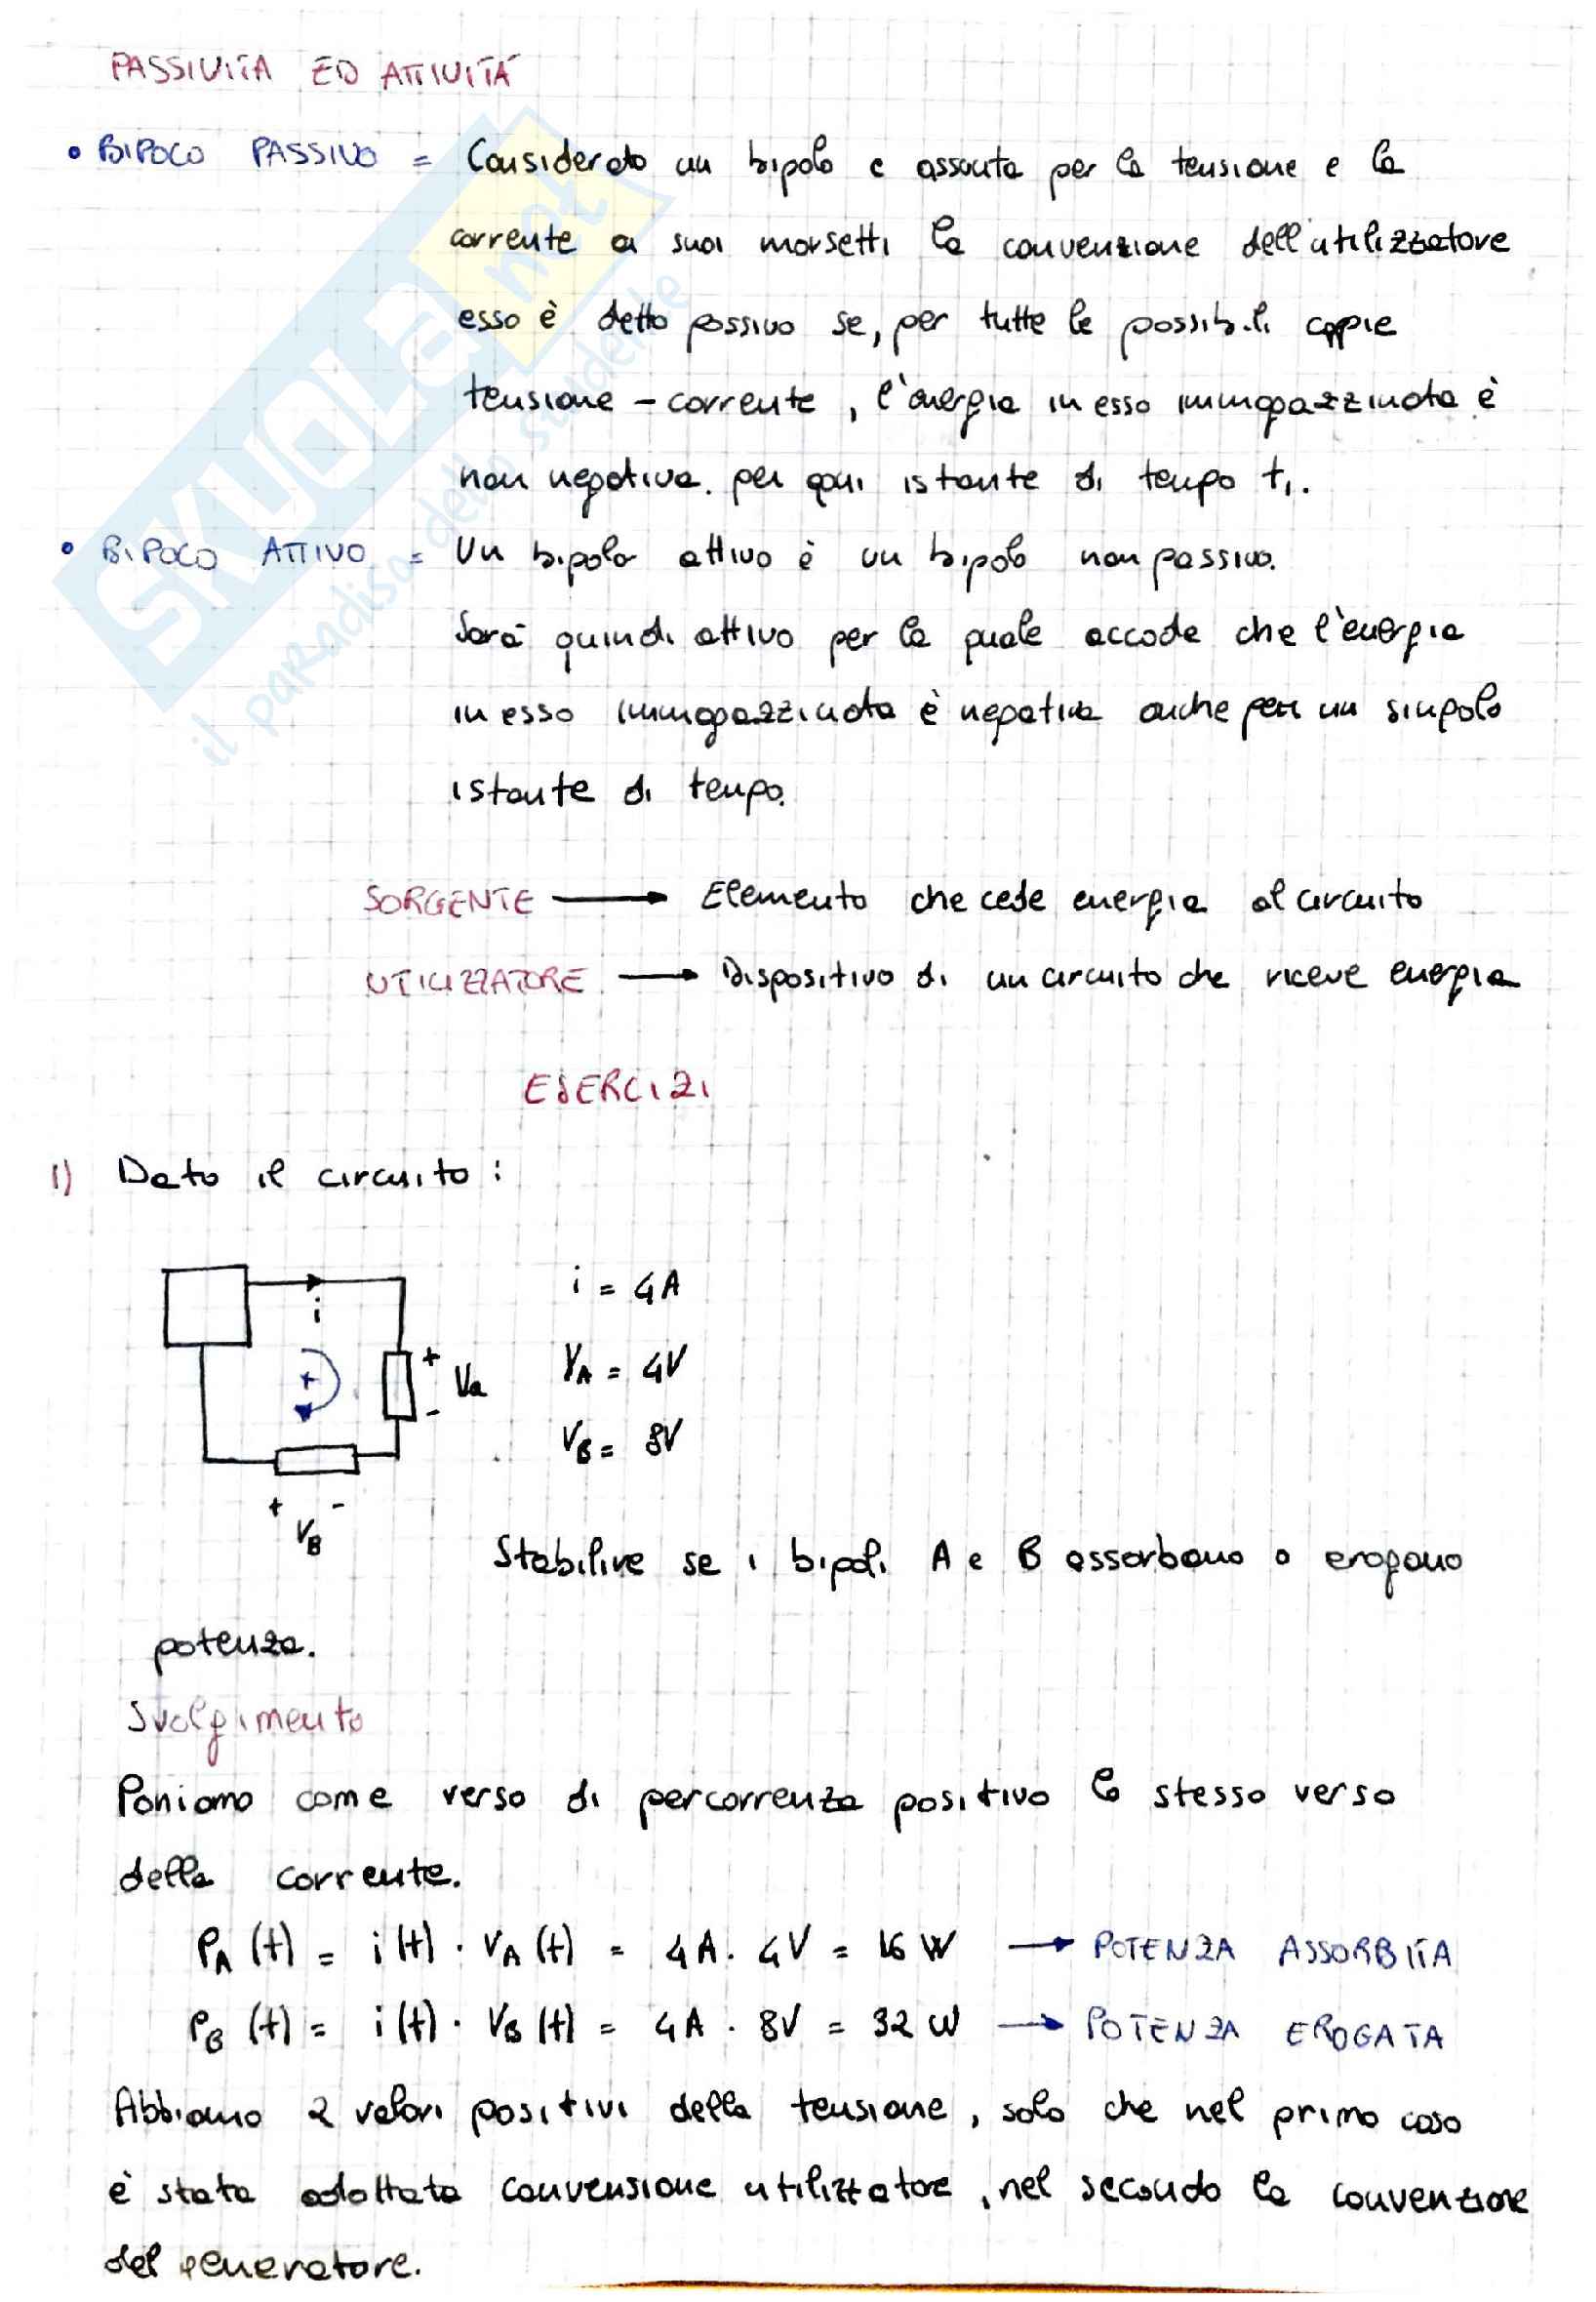 PASSIVITA ED ATTIVITÁ
• BIPOLO PASSIVO = Considerato un bipolo e assunta per la tensione e la
corrente ai suoi morsetti la convenzione dell'utilizzatore
esso è detto passivo se, per tutte le possibili coppie
tensione - corrente, l'energia in esso immagazzinata è
non negativa. per ogni istante di tempo t₁.
• BIPOLO ATTIVO = Un bipolo attivo è un bipolo non passivo.
Sarà quindi attivo per la quale accade che l'energia
in esso immagazzinata è negativa anche per un singolo
istante di tempo.
SORGENTE → Elemento che cede energia al circuito
UTILIZZATORE → Dispositivo di un circuito che riceve energia
ESERCIZI
1) Dato il circuito:
i
i = 4A
+
+ Va
-
VA = 4V
VB = 8V
+ -
VB
Stabilire se i bipoli A e B assorbano o erogano
potenza.
Svolgimento
Poniamo come verso di percorrenza positivo lo stesso verso
della corrente.
PA (t) = i(t) · VA (t) = 4A · 4V = 16 W → POTENZA ASSORBITA
PB (t) = i(t) · VB (t) = 4A · 8V = 32 W → POTENZA EROGATA
Abbiamo 2 valori positivi della tensione, solo che nel primo caso
è stata adottata convensione utilizzatore, nel secondo la convenzione
del generatore.
SKUOLA.net
il paradiso dello studente